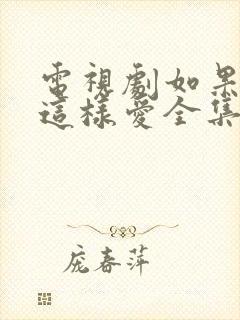 電視劇如果
這樣愛全集
庞春萍